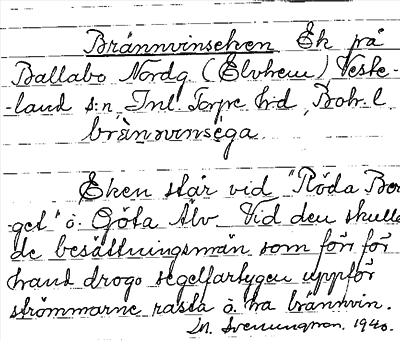 Brännvinseken Ek på
Ballabo Nordg (Elvhem) Veste-
-land s:n, Inl Torpe h:d, Boh. l.
brännvinsega.
Eken står vid "Röda Ber
get" ö. Göta Älv. Vid den skulle
de besättningsmän som förr för
hand drogo segelfartygen uppför
strömmarne rasta o ha brännvin.
1940.